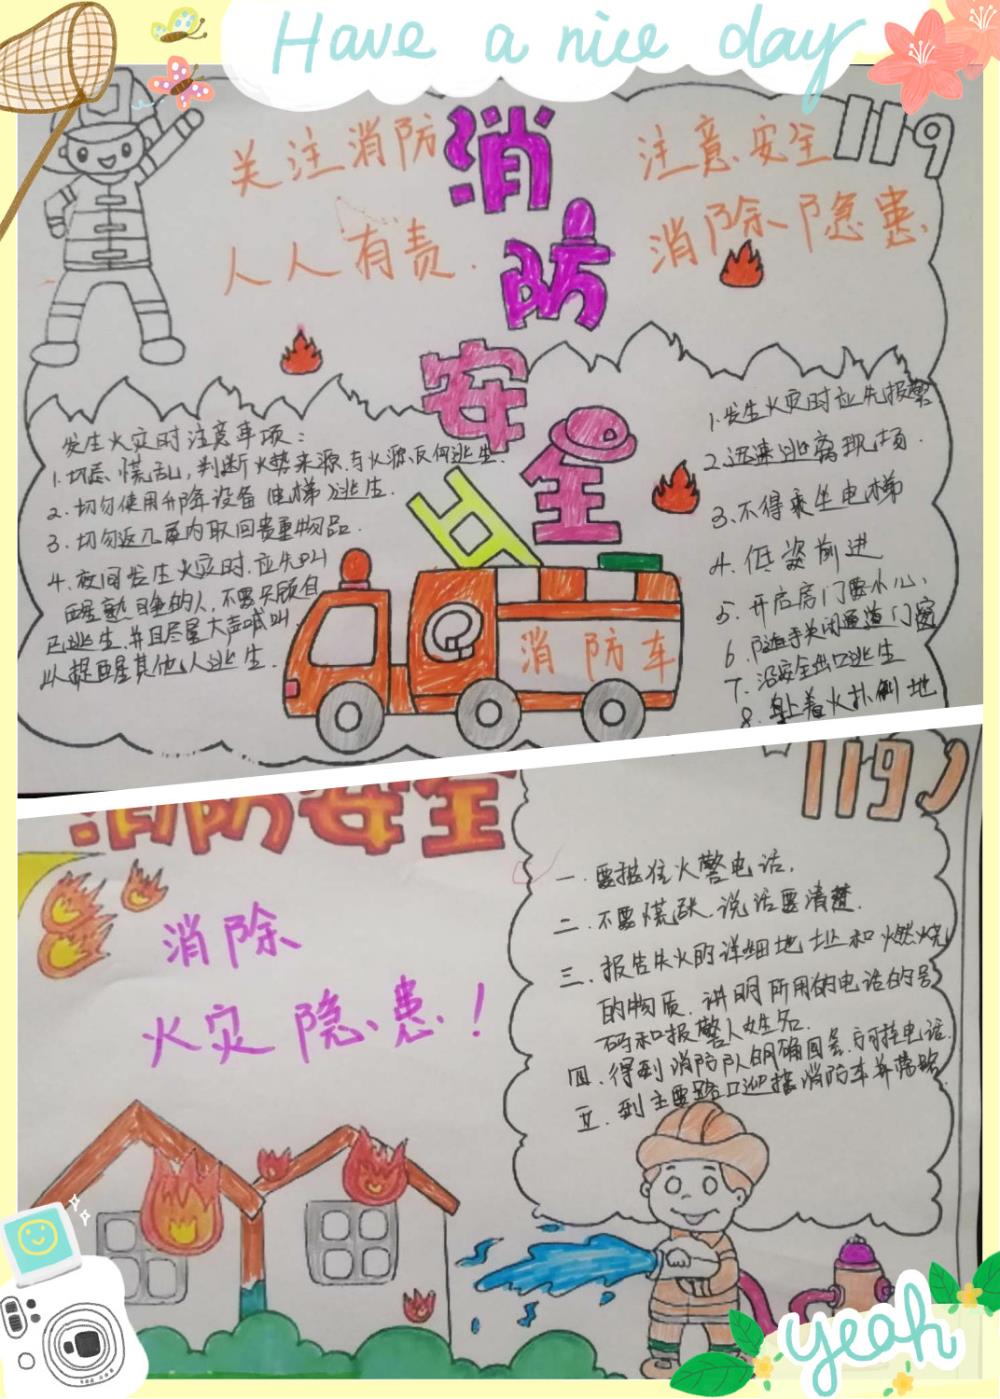 Have a nice day
关注消防
人人有责.
消防安全
注意安全
消除隐患.
119
发生火灾时注意事项:
1.切忌慌乱,判断火势来源,与火源反向逃生.
2.切勿使用升降设备(电梯)逃生.
3.切勿返入屋内取回贵重物品.
4.夜间发生火灾时,应先叫
醒熟睡的人,不要只顾自
己逃生,并且尽量大声喊叫,
以提醒其他人逃生.
消防车
1.发生火灾时应先报警
2.迅速逃离现场.
3.不得乘坐电梯
4.低姿前进
5.开启房门要小心,
6.随手关闭通道门窗
7.沿安全出口逃生
8.身上着火扑倒地
消防安全
消除
火灾隐患!
119
一.要抓住火警电话.
二.不要慌张.说话要清楚.
三.报告失火的详细地址和燃烧
的物质.讲明所用的电话的号
码和报警人姓名.
四.得到消防队明确回答.方可挂电话.
五.到主要路口迎接消防车并带路.
yeah